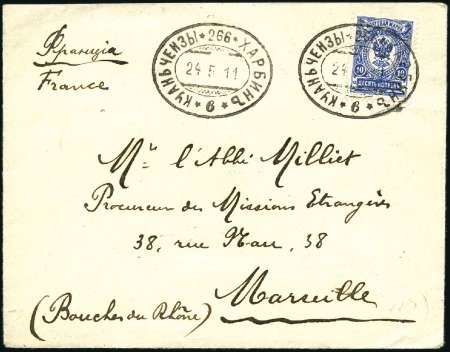 Франція
France
КУАНЬЧЕНЗЫ * 266 * ХАРБИНЪ
24 5 11
* 6 *
КУАНЬЧЕНЗЫ
24
* 6 *
10 10
ДЕСЯТЬ КОПѢЕКЪ
Mr l'Abbé Milliet
Procureur des Missions Etrangères
38, rue Nau, 38
Marseille
(Bouches du Rhône)